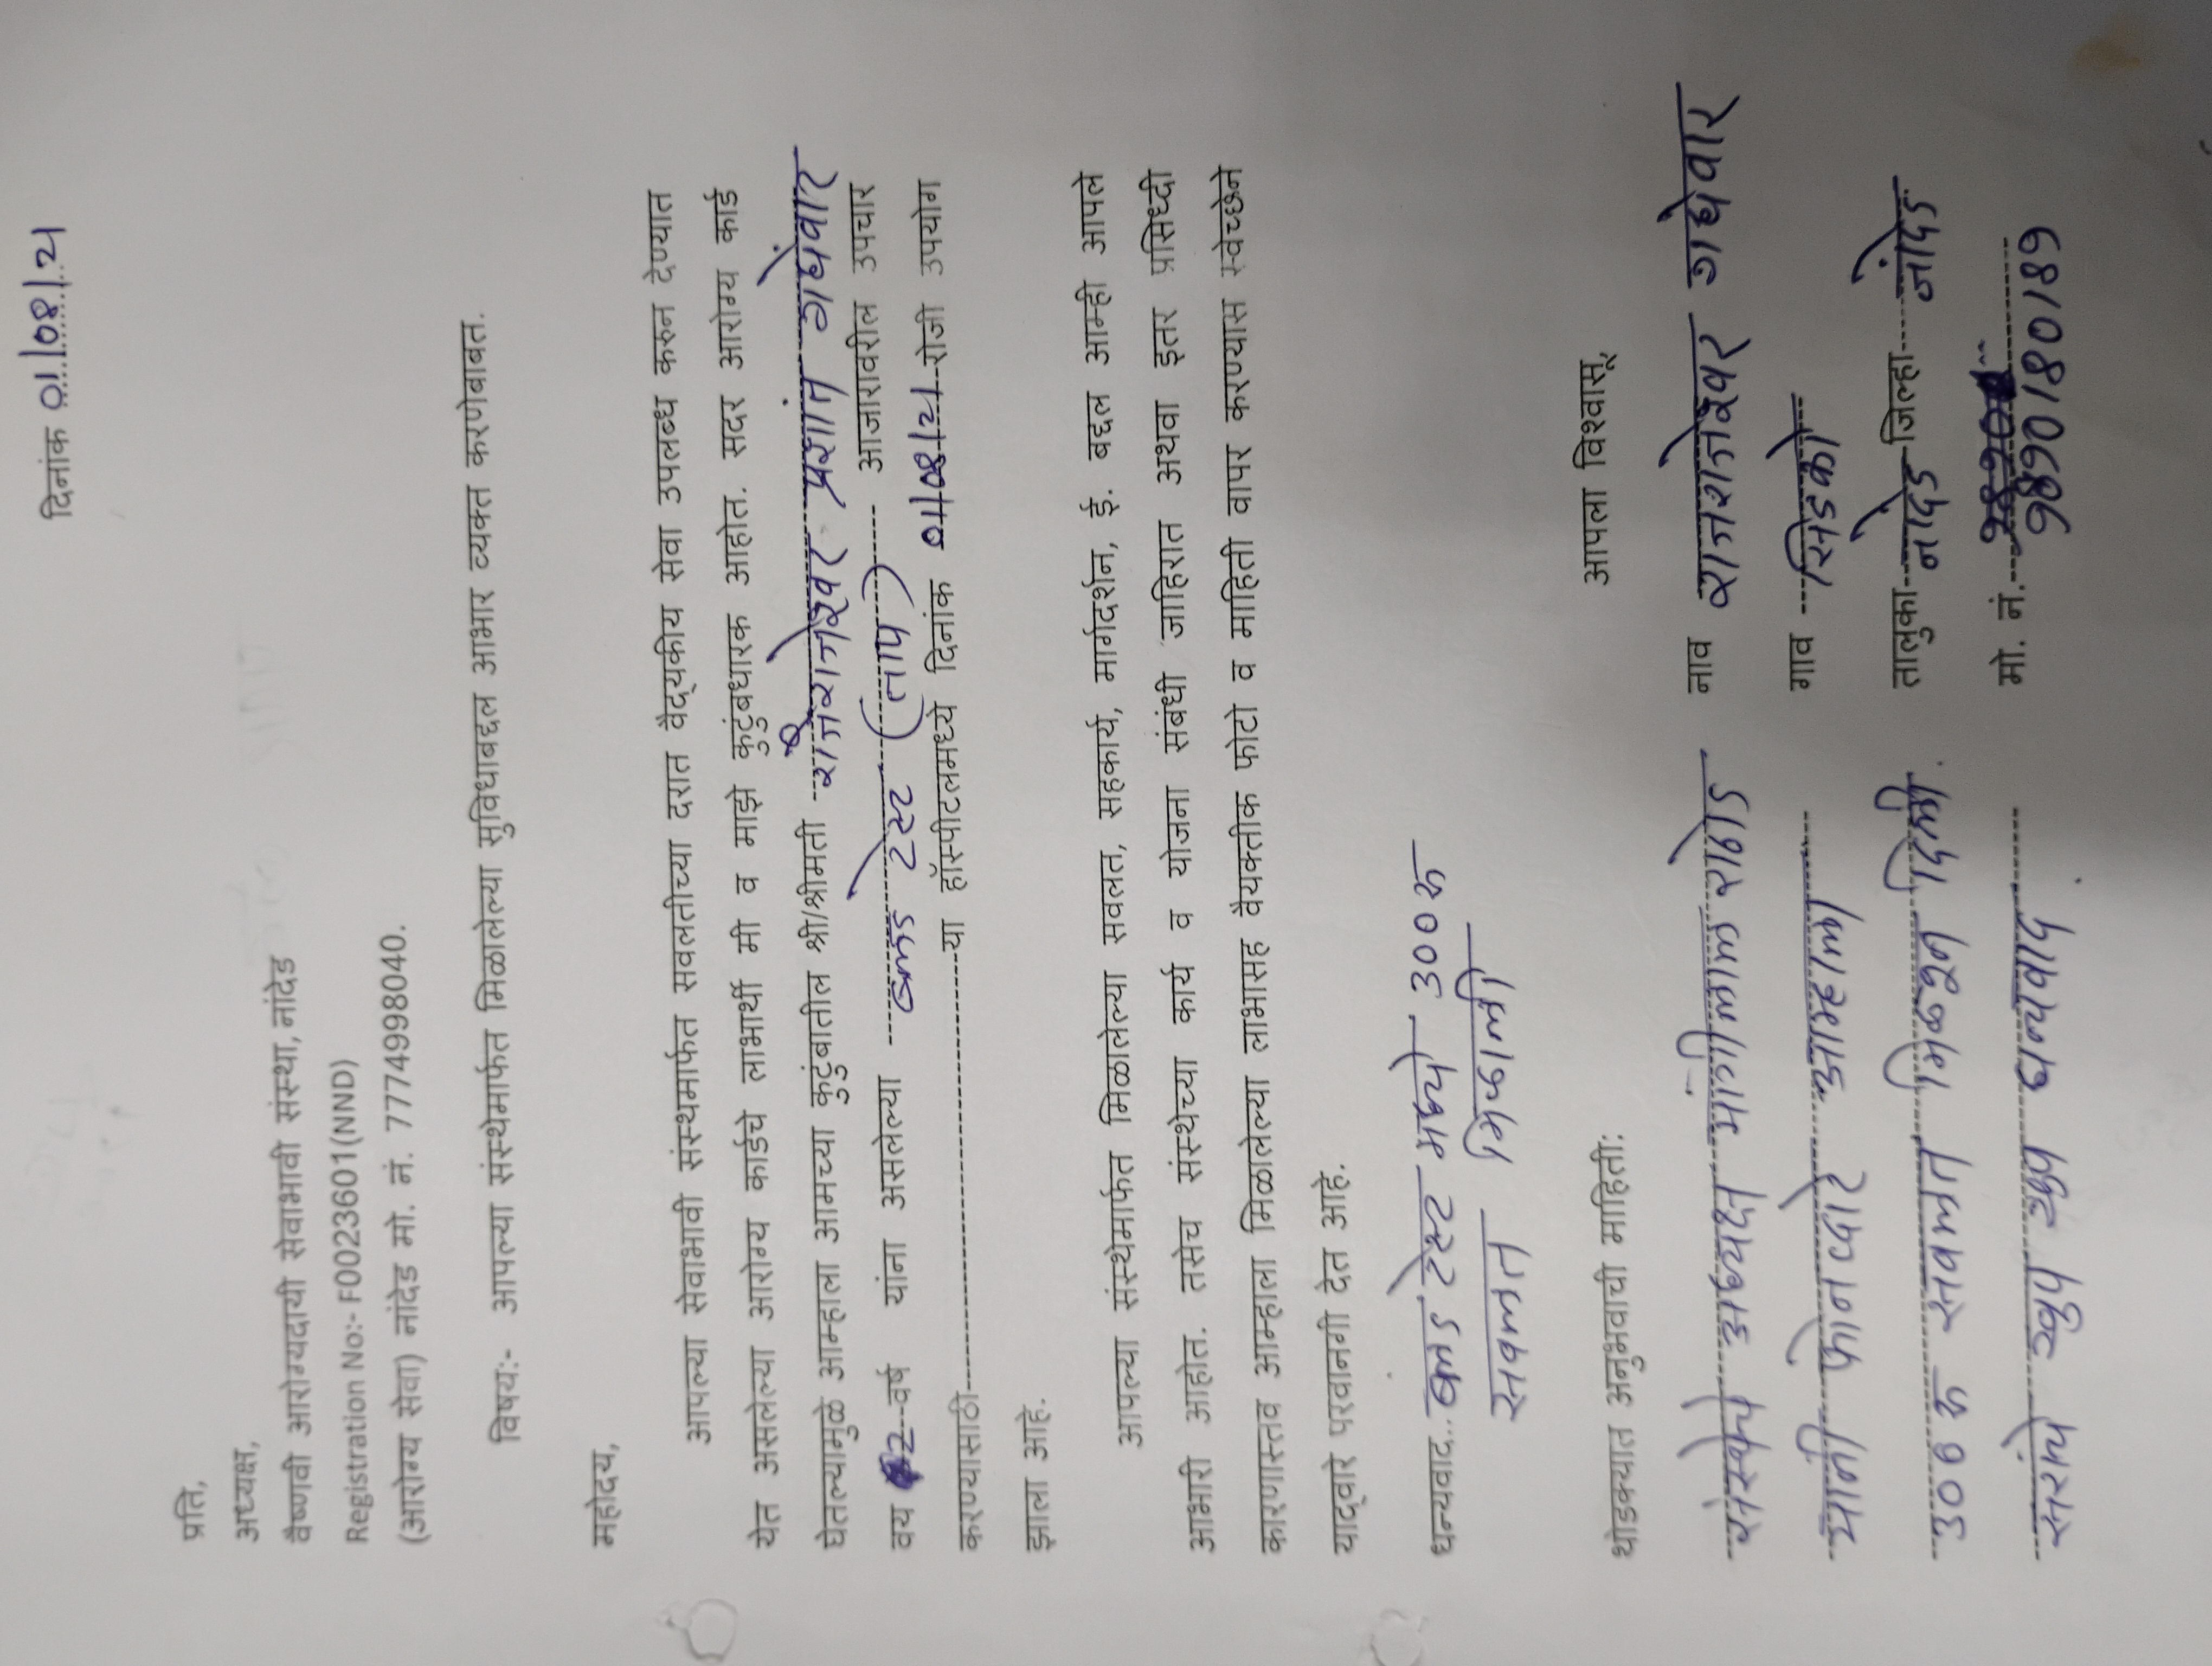 दिनांक ०१/०४/२५
प्रति,
अध्यक्ष,
वैष्णवी आरोग्यदायी सेवाभावी संस्था, नांदेड
Registration No:- F0023601(NND)
(आरोग्य सेवा) नांदेड मो. नं. 7774998040.
विषय:- आपल्या संस्थेमार्फत मिळालेल्या सुविधाबद्दल आभार व्यक्त करणेबाबत.
महोदय,
आपल्या सेवाभावी संस्थमार्फत सवलतीच्या दरात वैद्यकीय सेवा उपलब्ध करुन देण्यात
येत असलेल्या आरोग्य कार्डचे लाभार्थी मी व माझे कुटुंबधारक आहोत. सदर आरोग्य कार्ड
घेतल्यामुळे आम्हाला आमच्या कुटुंबातील श्री/श्रीमती प्रशांत गाधेवार
वय वर्ष यांना असलेल्या ब्लड टेस्ट (ताप) आजारावरील उपचार
करण्यासाठी या हॉस्पीटलमध्ये दिनांक रोजी उपयोग
झाला आहे.
आपल्या संस्थेमार्फत मिळालेल्या सवलत, सहकार्य, मार्गदर्शन, ई. बद्दल आम्ही आपले
आभारी आहोत. तसेच संस्थेच्या कार्य व योजना संबंधी जाहिरात अथवा इतर प्रसिध्दी
कारणास्तव आम्हाला मिळालेल्या लाभासह वैयक्तीक फोटो व माहिती वापर करण्यास स्वेच्छेने
याद्वारे परवानगी देत आहे.
धन्यवाद.. ब्लड टेस्ट मध्ये 300रू
सवलत मिळाली
थोडक्यात अनुभवाची माहिती:
आपला विश्वासू,
संस्थेचे अध्यक्ष राठोड
नाव गाधेवार
यांनी फोन द्वारे
गाव सिडको
300 रु सवलत मिळून दिली.
तालुका नांदेड जिल्हा नांदेड
खुप खुप धन्यवाद
मो. नं. 9890180189